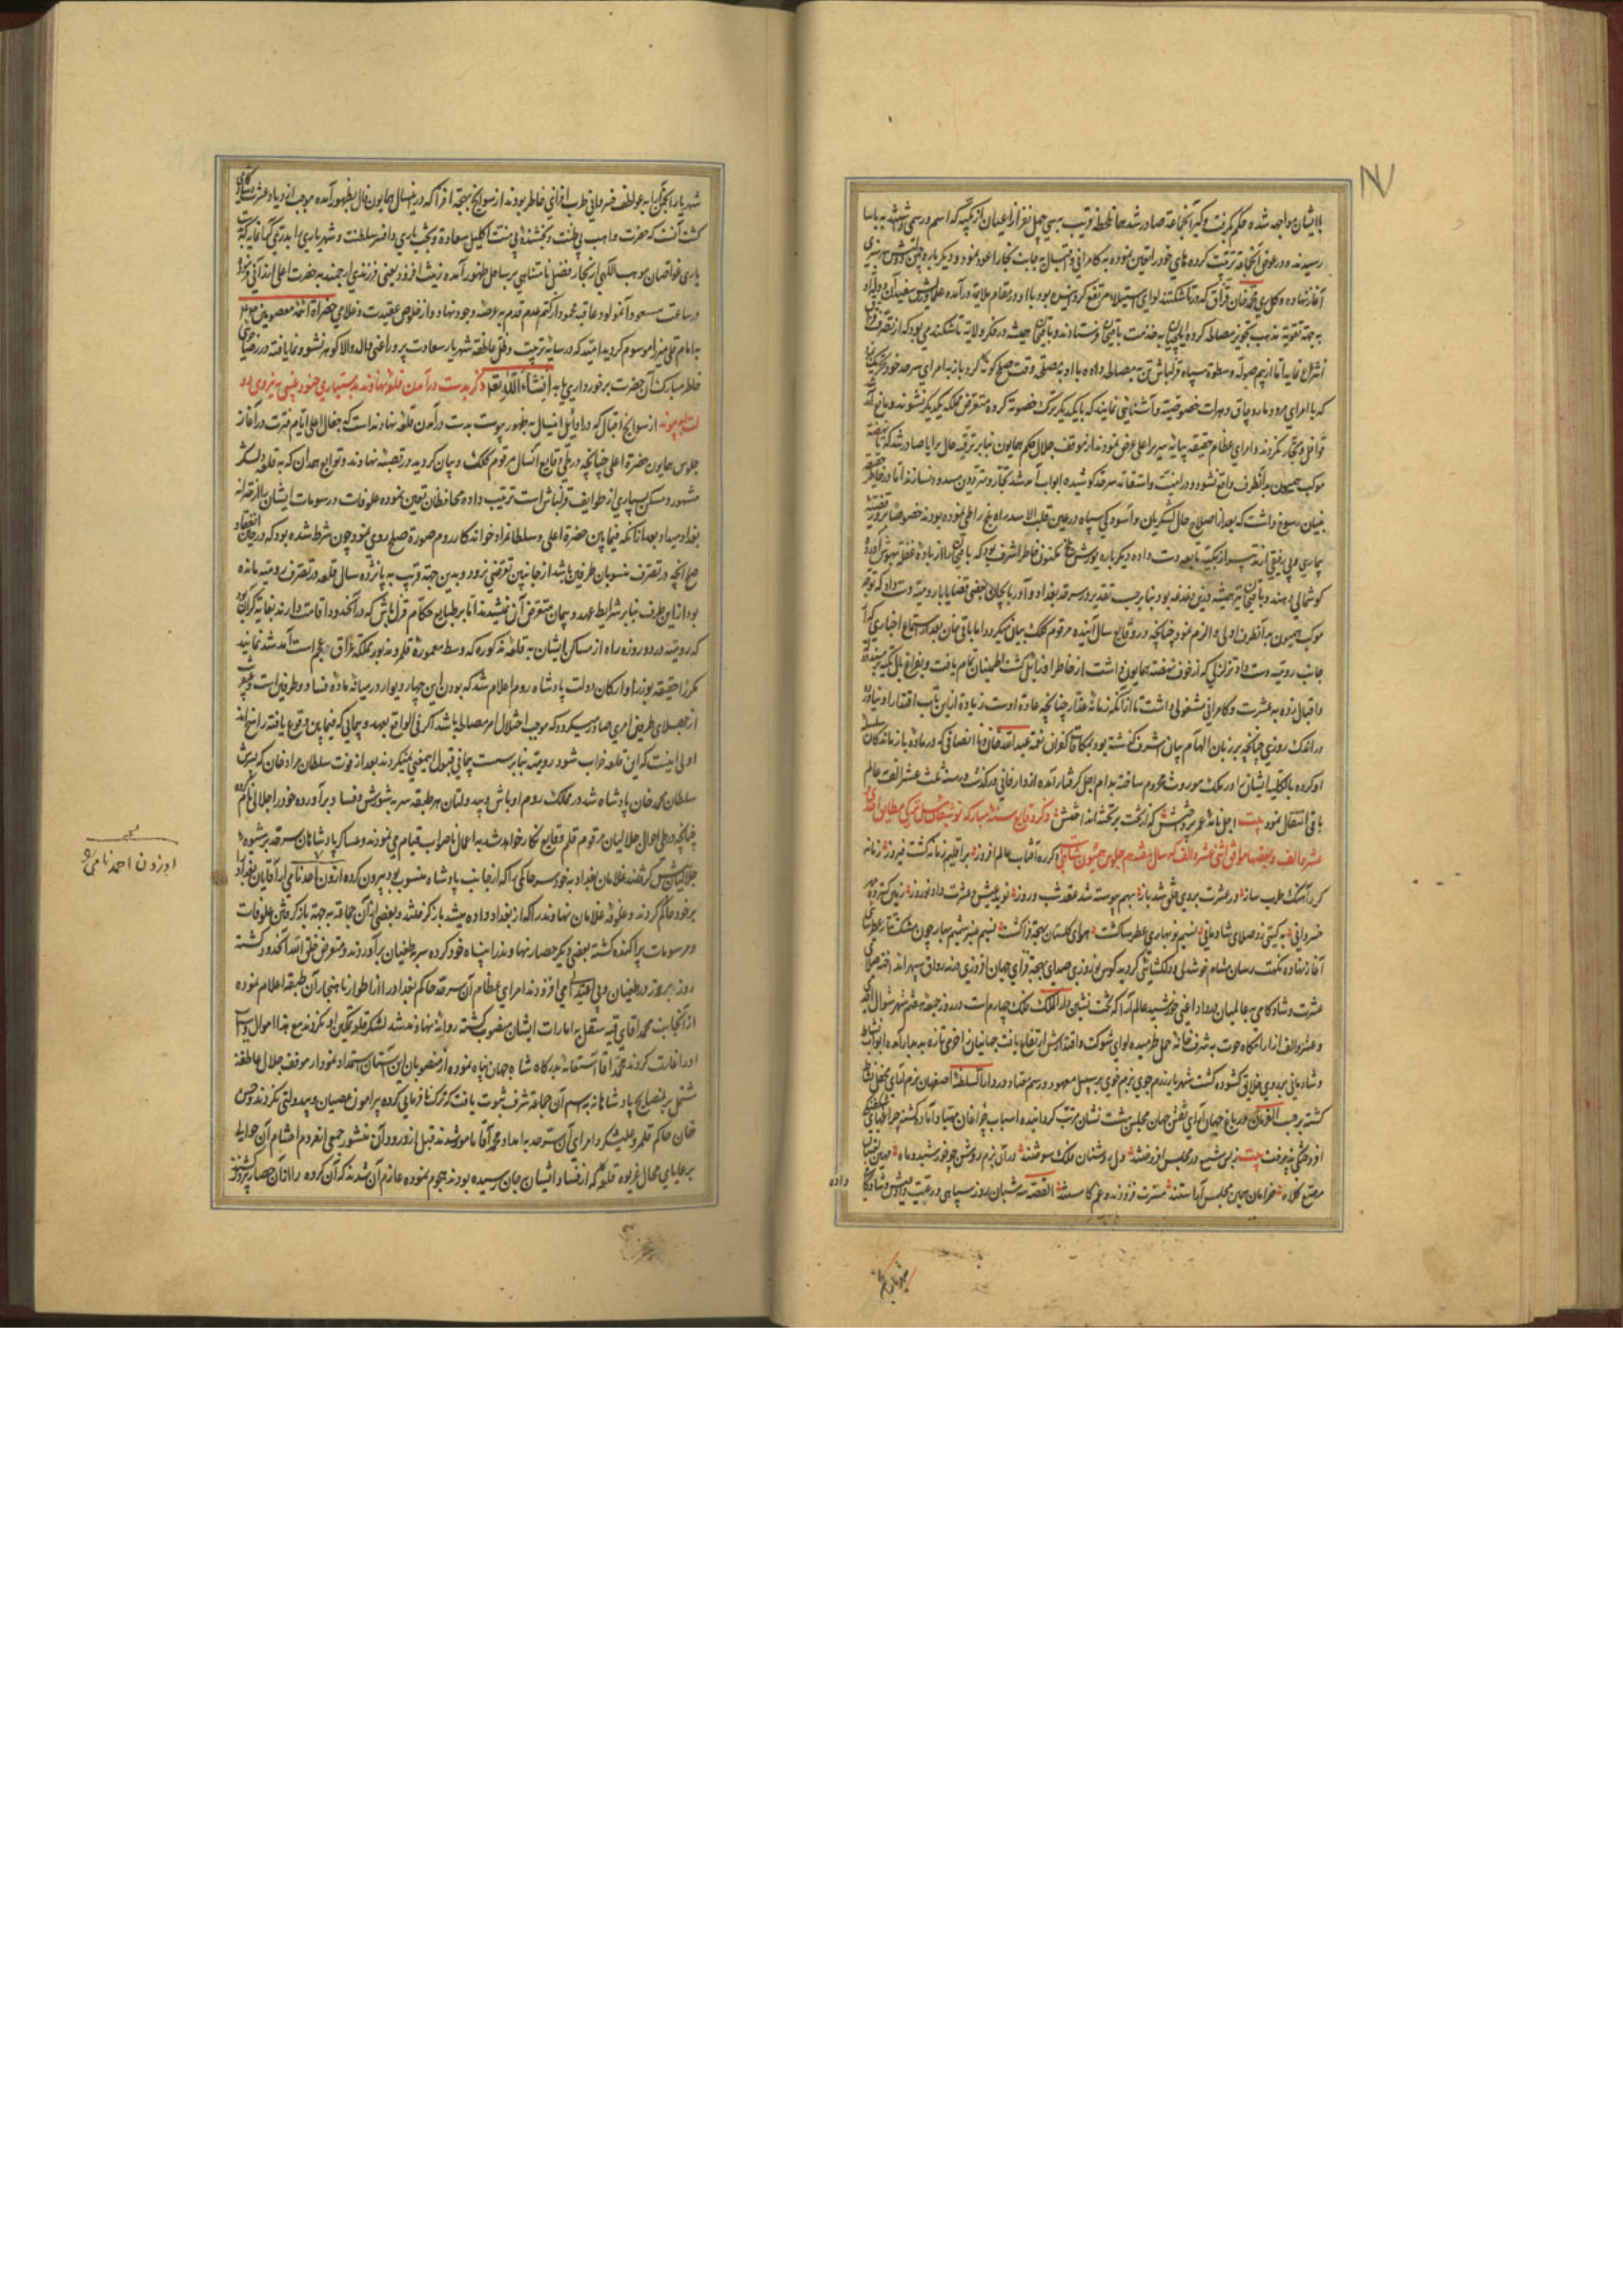 بالایشان مواجهه شده حکم بگرفت و گیر آنجماعة صادر شد همان لحظه قریب به سی چهل نفر از اعیان ازبکیه که اسم و رسمی داشتند به یاسا
رسیدند و در عوض آنجماعة تربیت کرده های خود را تعیین نموده به کامرانی و اقبال به جانب بخارا عود نمود و دیگر باره
آغاز نهاده محمد خان قزاق که در تاشکند لوای استیلا مرتفع
به جهة تقویة مذهب تجویز مصالحه کرده ایلچیان به خدمت باقی خان فرستادند و باقی خان همیشه در فکر ولایة تاشکند می بود که از تصرف
انتزاع نماید اما از بیم صولة و سطوة سپاه قزلباش تن به مصالحه داده با او به مصلحة وقت صلح گونه کرد و باز به امرای سرحد خود
که با امرای مرو و ماروچاق و هرات خصوصیة و آشنائی نمایند که با یکدیگر ترک خصومة کرده متعرض مملکة یکدیگر نشوند و مانع آمد شد
قوافل و تجار نگردند و امرای عظام حقیقة به پایه سریر اعلی عرض نمودند از موقف جلال حکم همایون بنابر ترفیه حال برایا صادر شد که تا نهضة
موکب همیون بدآنطرف واقع نشود و در امنیت و استقامة سرحد کوشیده ابواب آمد شد تجار و مترددین مسدود نسازند اما در خاطر
بنیان رسوخ داشت که بعد از اصلاح حال لشکریان و آسودگی سپاه در عین قلب الاسد راه بلخ را طی نموده بودند خصوصا
موکب همیون بدآنطرف اولی و الزم نمود چنانچه در وقایع سال آینده مرقوم کلک بیان میگردد اما باقی خان بعد از استماع اخباری که از
جانب رومیه دست داد تزلزلی که از خوف نهضة همایون داشت از خاطر او زایل گشت اطمینان تمام یافت و بفراغ بال تکیه بر مسند
و اقبال زده به عشرت و کامرانی مشغولی داشت تا از آنکه زمانه غدار چنانچه عادة اوست زیاده از این تاب اقتدار او نیاورد
در اندک روزی چنانچه بر زبان الهام بیان اشرف گذشته بود به مکافات کفران نعمة عبد الله خان و با انصافی که در ماده بازماندگان سلسله
او کرده بالکلیه ایشانرا از ملک موروث محروم ساخته به دام اجل گرفتار آمده از دار فانی درگذشت و در سنه ثلث عشر الف به عالم
باقی انتقال نمود بیت اجل نامه عمر بر وی نوشت ذکر وقایع سنه مبارکه توشقان ئیل ترکی مطابق احدی
عشر و الف و بعضها موافق اثنی عشر و الف که سال هفدهم جلوس همیون شاهی است
کرد آهنگ طرب ساز در عشرت بروی خلق شد باز بهم پیوسته شد عقد شب و روز نوید عیش و عشرت داد نوروز
خسروانی به گیتی زد صلای شادمانی نسیم نوبهاری عطرسا گشت هوای گلستان بهجة فزا گشت نسیم عنبر شمیم بهار چون مشک تتار عطرسای
آغاز نهاده نکهت رسان مشام خوشدلی و دلگشائی گردید کوس نوروزی صدای بهجة فزای جهان افروزی در نه رواق سپهر انداخته صلای
عشرت و شادکامی به عالمیان در داد اعنی خورشید عالم آرا که تخت نشین دار الملک فلک چهارم است در روز جمعه هفتم شهر شوال
و عشر و الف از آرامگاه حوت به شرف خانه حمل خرامیده لوای شوکت و اقتدارش ارتفاع یافت جهانیان را خرمی تازه پدیدار آمده ابواب
و شادمانی بر روی خلایق گشوده گشت شهریار رزم جوی بزم خوی بر سبیل معهود و رسم معتاد در دار السلطنة اصفهان بزم آرای محفل
گشته بر حسب الفرمان در باغ جهان آرای نقش جهان مجلس بهشت نشان مرتب گردانیده اسباب چراغان مهیا و آماده گشته چراغهای
افروختگی پذیرفت بیت ز بس شمع در مجلس افروختند دل روشنان فلک سوختند در آن بزم روشن چو خورشید و ماه
مرصع کلاه خرامان به این مجلس آراستند مسرت فزودند و غم کاستند القصه سه شبان روز سپاهی و رعیت و درویش و شاه
داده
شهریار انجمن آرا به عواطف خسروانی طرب افزای خاطر بودند از سوانح بهجة افزا که در این سال همایون فال بظهور آمده موجب ازدیاد عشرت و شادکامی
گشت آنست که حضرت واهب بی ضنت و بخشنده بی منت اکلیل سعادة و بختیاری و افسر سلطنت و شهریاری را به دری
یاری غواصان مواهب الهی از بحار فضل نامتناهی بر ساحل ظهور آمده زینت افزود یعنی فرزندی ارجمند به حضرت اعلی ارزانی فرمود
در ساعت مسعود آن مولود عاقبة محمود از کتم عدم قدم به عرصه وجود نهاد و از خلوص عقیدت و غلامی حضراة ائمه معصومین
به امام قلی میرزا موسوم گردید امید که در سایه تربیت و ظل عاطفة شهریار سعادت پرور اعنی والد والا گوهر نشو و نما یافته در رضاجوئی
خاطر مبارک آن حضرت برخورداریها یابد انشاء الله تعالی ذکر بدست درآمدن قلعه نهاوند به دستیاری جنود غیبی به نیروی
از سوانح اقبال که در اوایل این سال به ظهور پیوست به دست درآمدن قلعه نهاوند است که چغال اغلی در ایام فترت در آغاز
جلوس همایون حضرة اعلی چنانچه در طی وقایع آنسال مرقوم کلک بیان گردید در قصبه نهاوند و توابع همدان که به قلمرو علیشکر
مشهور و مسکن بسیاری از طوایف قزلباش است ترتیب داده محافظان تعیین نموده علوفات و رسومات ایشانرا از خزانه
بغداد میداد بعد از آنکه فیما بین حضرة اعلی و سلطان مراد خواندکار روم صورة صلح روی نمود چون شرط شده بود که در حین انعقاد
صلح آنچه در تصرف منسوبان طرفین باشد از جانبین تعرضی نرود و بدین جهة قریب به پانزده سال قلعه در تصرف رومیه مانده
بود از این طرف بنابر شرایط عهد و پیمان متعرض آن نمیشدند اما بر طبایع حکام قزلباش که در آنحدود اقامت دارند بغایة گران بود
که رومیه در دو روزه راه از مساکن ایشان به قلعه مذکوره که وسط معموره قلمرو مزبور مملکة عراق عجم است آمد شد نمایند
مکررا حقیقة به وزرا و ارکان دولت پادشاه روم اعلام شد که بودن این چهار دیوار در میانه ماده فساد طرفین است و
از جهلای طرفین امری صادر میگردد که موجب اختلال امر مصالحه باشد اگر فی الواقع عهد و پیمانی که فیما بین وقوع یافته راسخ اند
اولی اینست که این قلعه خراب شود رومیه بنابر سست پیمانی قبول اینمعنی نمیکردند بعد از فوت سلطان مراد خان که پسرش
سلطان محمد خان پادشاه شد در مملکت روم اوباش و بیدولتان هر طبقه سر به شورش و فساد برآورده خود را جلالی نام کردند
چنانچه در طی احوال جلالیان مرقوم قلم وقایع نگار خواهد شد به اعمال ناصواب قیام می نمودند و عساکر پادشاهان سرحد بر شیوه
جلالیان گرفتند غلامان بغداد به خودسر حاکمی را که از جانب پادشاه منسوب بود بیرون کرده اوزون احمد نامی از آقایان بغداد را
بر خود حاکم کردند و علوفه غلامان نهاوند را که از بغداد داده میشد بازگرفتند و بعضی از آن جماعة به جهة بازگرفتن علوفات
و مرسومات پراکنده گشته بعضی دیگر حصار نهاوند را پناه خود کرده سر به طغیان برآوردند و متعرض خلق الله آنحدود گشته
روز بروز در طغیان و بی اعتدالی می افزودند امرای عظام آن سرحد حاکم بغداد را از اطوار ناهنجار آن طبقه اعلام نموده
از آنجانب محمد آقای به امارات ایشان منصوب گشته روانه نهاوند شد لشکر قلعه تمکین او نکردند مع هذا اموال و اسباب
او را غارت کردند محمد آقا استغاثه به درگاه شاه جهان پناه نموده از منصوبان این آستان استمداد نمود از موقف جلال عاطفة
مشتمل بر نصایح پادشاهانه به اسم آن جماعة شرف ثبوت یافت که ترک نافرمانی کرده پیرامون عصیان و بیدولتی نگردند و حسن
خان حاکم قلمرو علیشکر و امرای آن سرحد به امداد محمد آقا مامور شدند قبل از ورود آن منشور جمعی از مردم احشام آن حوالی
بر عایای محال غریوه قلعه که از فساد ایشان بجان رسیده بودند هجوم نموده عازم آن شدند که آن گروه را از آن حصار بیرون کنند
اوزون احمد نامی